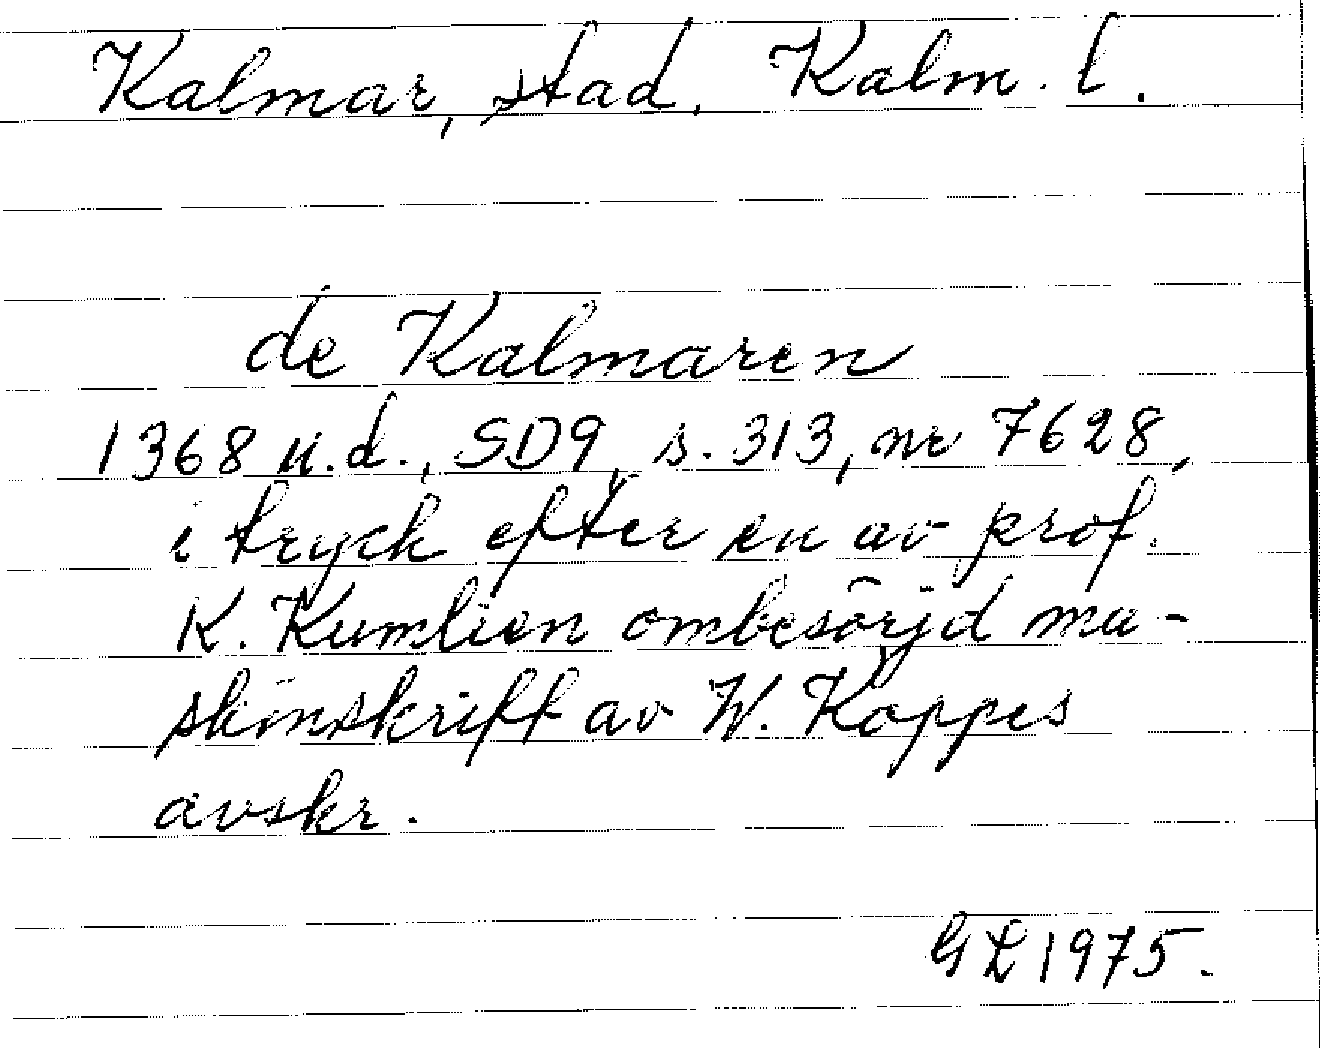 Kalmar, stad. Kalm. l.
de Kalmaren
1368 u.d., SD9, s. 313, nr 7628,
i tryck efter en av prof.
K. Kumlien ombesörjd ma-
skinskrift av W. Koppes
avskr.
GL 1975.